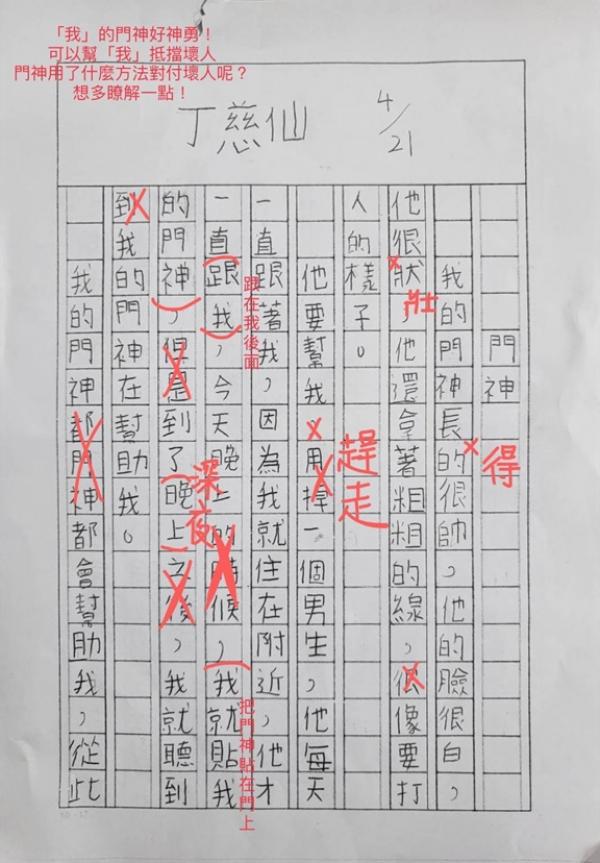 「我」的門神好神勇！
可以幫「我」抵擋壞人
門神用了什麼方法對付壞人呢？
想多瞭解一點！
丁慈仙
4/21
門神
我的門神長的很帥，他的臉很白，
得
他很狀，他還拿著粗粗的線，很像要打
壯
人的樣子。
趕走
他要幫我用揮一個男生，他每天
一直跟著我，因為我就住在附近，他才
跟在我後面
一直跟我，今天晚上的時候，我就貼我
把門神貼在門上
的門神，但是到了晚上之後，我就聽到
深夜
到我的門神在幫助我。
我的門神都門神都會幫助我，從此